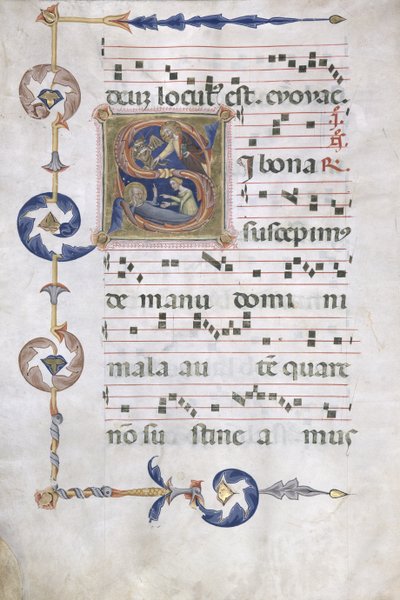 deuʒ locut' est. evovae.
.i.
R.
Si bona R.
suscepimꝰ
de manu domi ni
mala au tē quare
nō su stine a mus